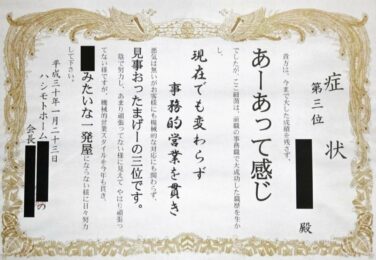 症状
第三位
殿
貴方は、今まで大した成績を残さず、
あーあって感じ
でしたが、ここ最近は、前職の事務職で大成功した職歴を生かし、
現在でも変わらず
事務的営業を貫き
悪気は無いがお客様にも機械的な対応にも関わらず、
見事おったまげーの三位です。
陰で努力し、あまり頑張ってない様に見えてやはり頑張って
ない様ですが、機械的営業スタイルを今年も貫き、
みたいな一発屋にならない様に日々努力
して下さい。
平成三十年一月二十三日
ハシモトホーム
の
会長